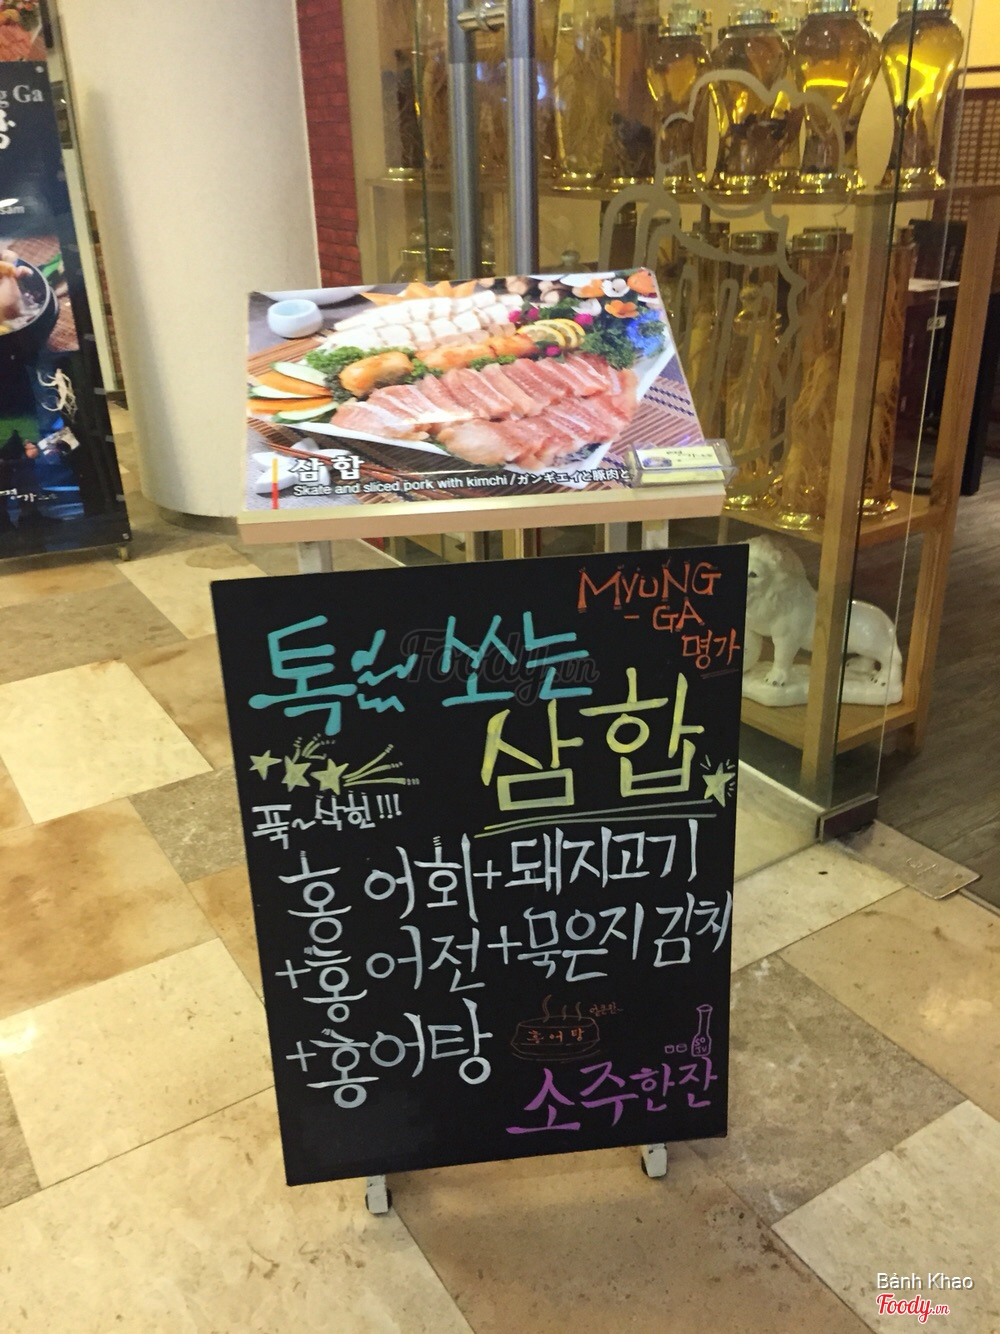 g Ga
sam
삼합
Skate and sliced pork with kimchi / ガンギエイと豚肉と
MYUNG
-GA
명가
톡 쏘는
삼합
푹~삭힌!!!
홍어회+돼지고기
+홍어전+묵은지김치
+홍어탕
홍어탕
SOJU
소주한잔
Foody.vn
Bảnh Khao
Foody.vn